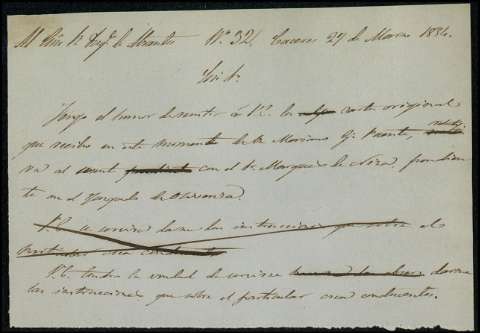 Al Exmo Sr. Duqe. de Abrantes Nº 32. Caceres 27 de Marzo 1834.
Exmo Sr.
Tengo el honor de remitir á V.E. la carta original
que recibo en este momento de D. Mariano Gz. Puente, relati
va al con el Sr. Marques de pendien
te en el Juzgado de Olivenza.
V.E. se servirá darme las instrucciones que sobre el
particular crea conducentes
V.E. tendra la bondad de servirse darme
las instrucciones que sobre el particular crea conducentes.